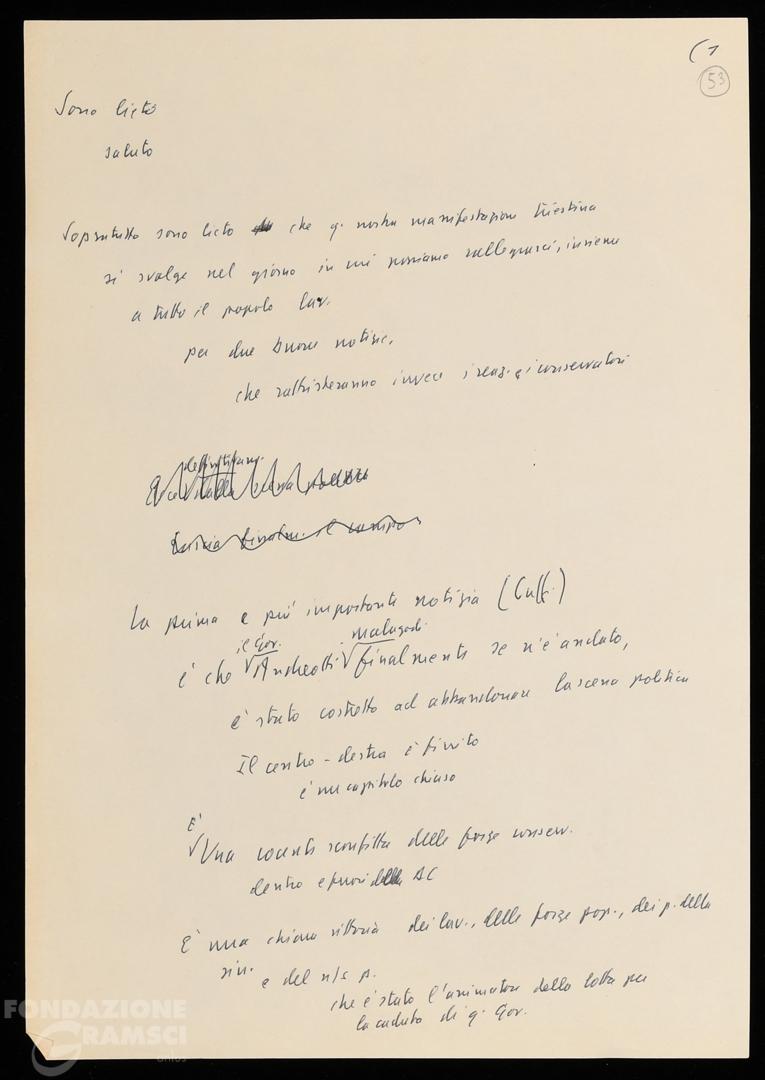 (1
53
Sono lieto
saluto
Soprattutto sono lieto che q. nostra manifestazione triestina
si svolge nel giorno in cui possiamo rallegrarci, insieme
a tutto il popolo lav.
per due buone notizie,
che rattristeranno invece i reaz. e i conservatori
definitivam.
scena politica
Lascia finalm. il campo
La prima e più importante notizia (Cuff.)
il Gov. malagodi
è che √Andreotti √finalmente se n'è andato,
è stato costretto ad abbandonare la scena politica
Il centro-destra è finito
è un capitolo chiuso
È
√Una cocente sconfitta delle forze conserv.
dentro e fuori della
È una chiara vittoria dei lav., delle forze pop., dei p. della
sin. e del n/s p.
che è stato l'animatore della lotta per
la caduta di q. Gov.
FONDAZIONE
GRAMSCI
onlus